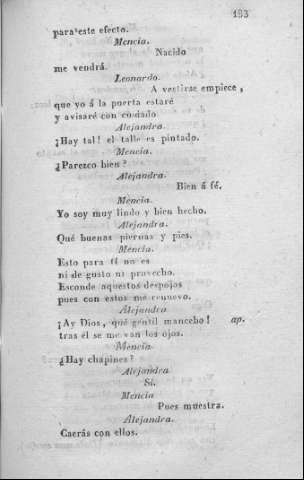 183
para este efecto.
Mencia.
Nacido
me vendrá.
Leonardo.
A vestirse empiece,
que yo á la puerta estaré
y avisaré con cuidado
Alejandra.
¡Hay tal! el talle es pintado.
Mencia.
¿Parezco bien?
Alejandra.
Bien á fé.
Mencia.
Yo soy muy lindo y bien hecho.
Alejandra.
Qué buenas piernas y pies.
Mencia.
Esto para tí no es
ni de gusto ni provecho.
Esconde aquestos despojos
pues con estos me renuevo.
Alejandra
¡Ay Dios, qué gentil mancebo! ap.
tras él se me van los ojos.
Mencia
¿Hay chapines?
Alejandra
Sí.
Mencia
Pues muestra.
Alejandra.
Caerás con ellos.